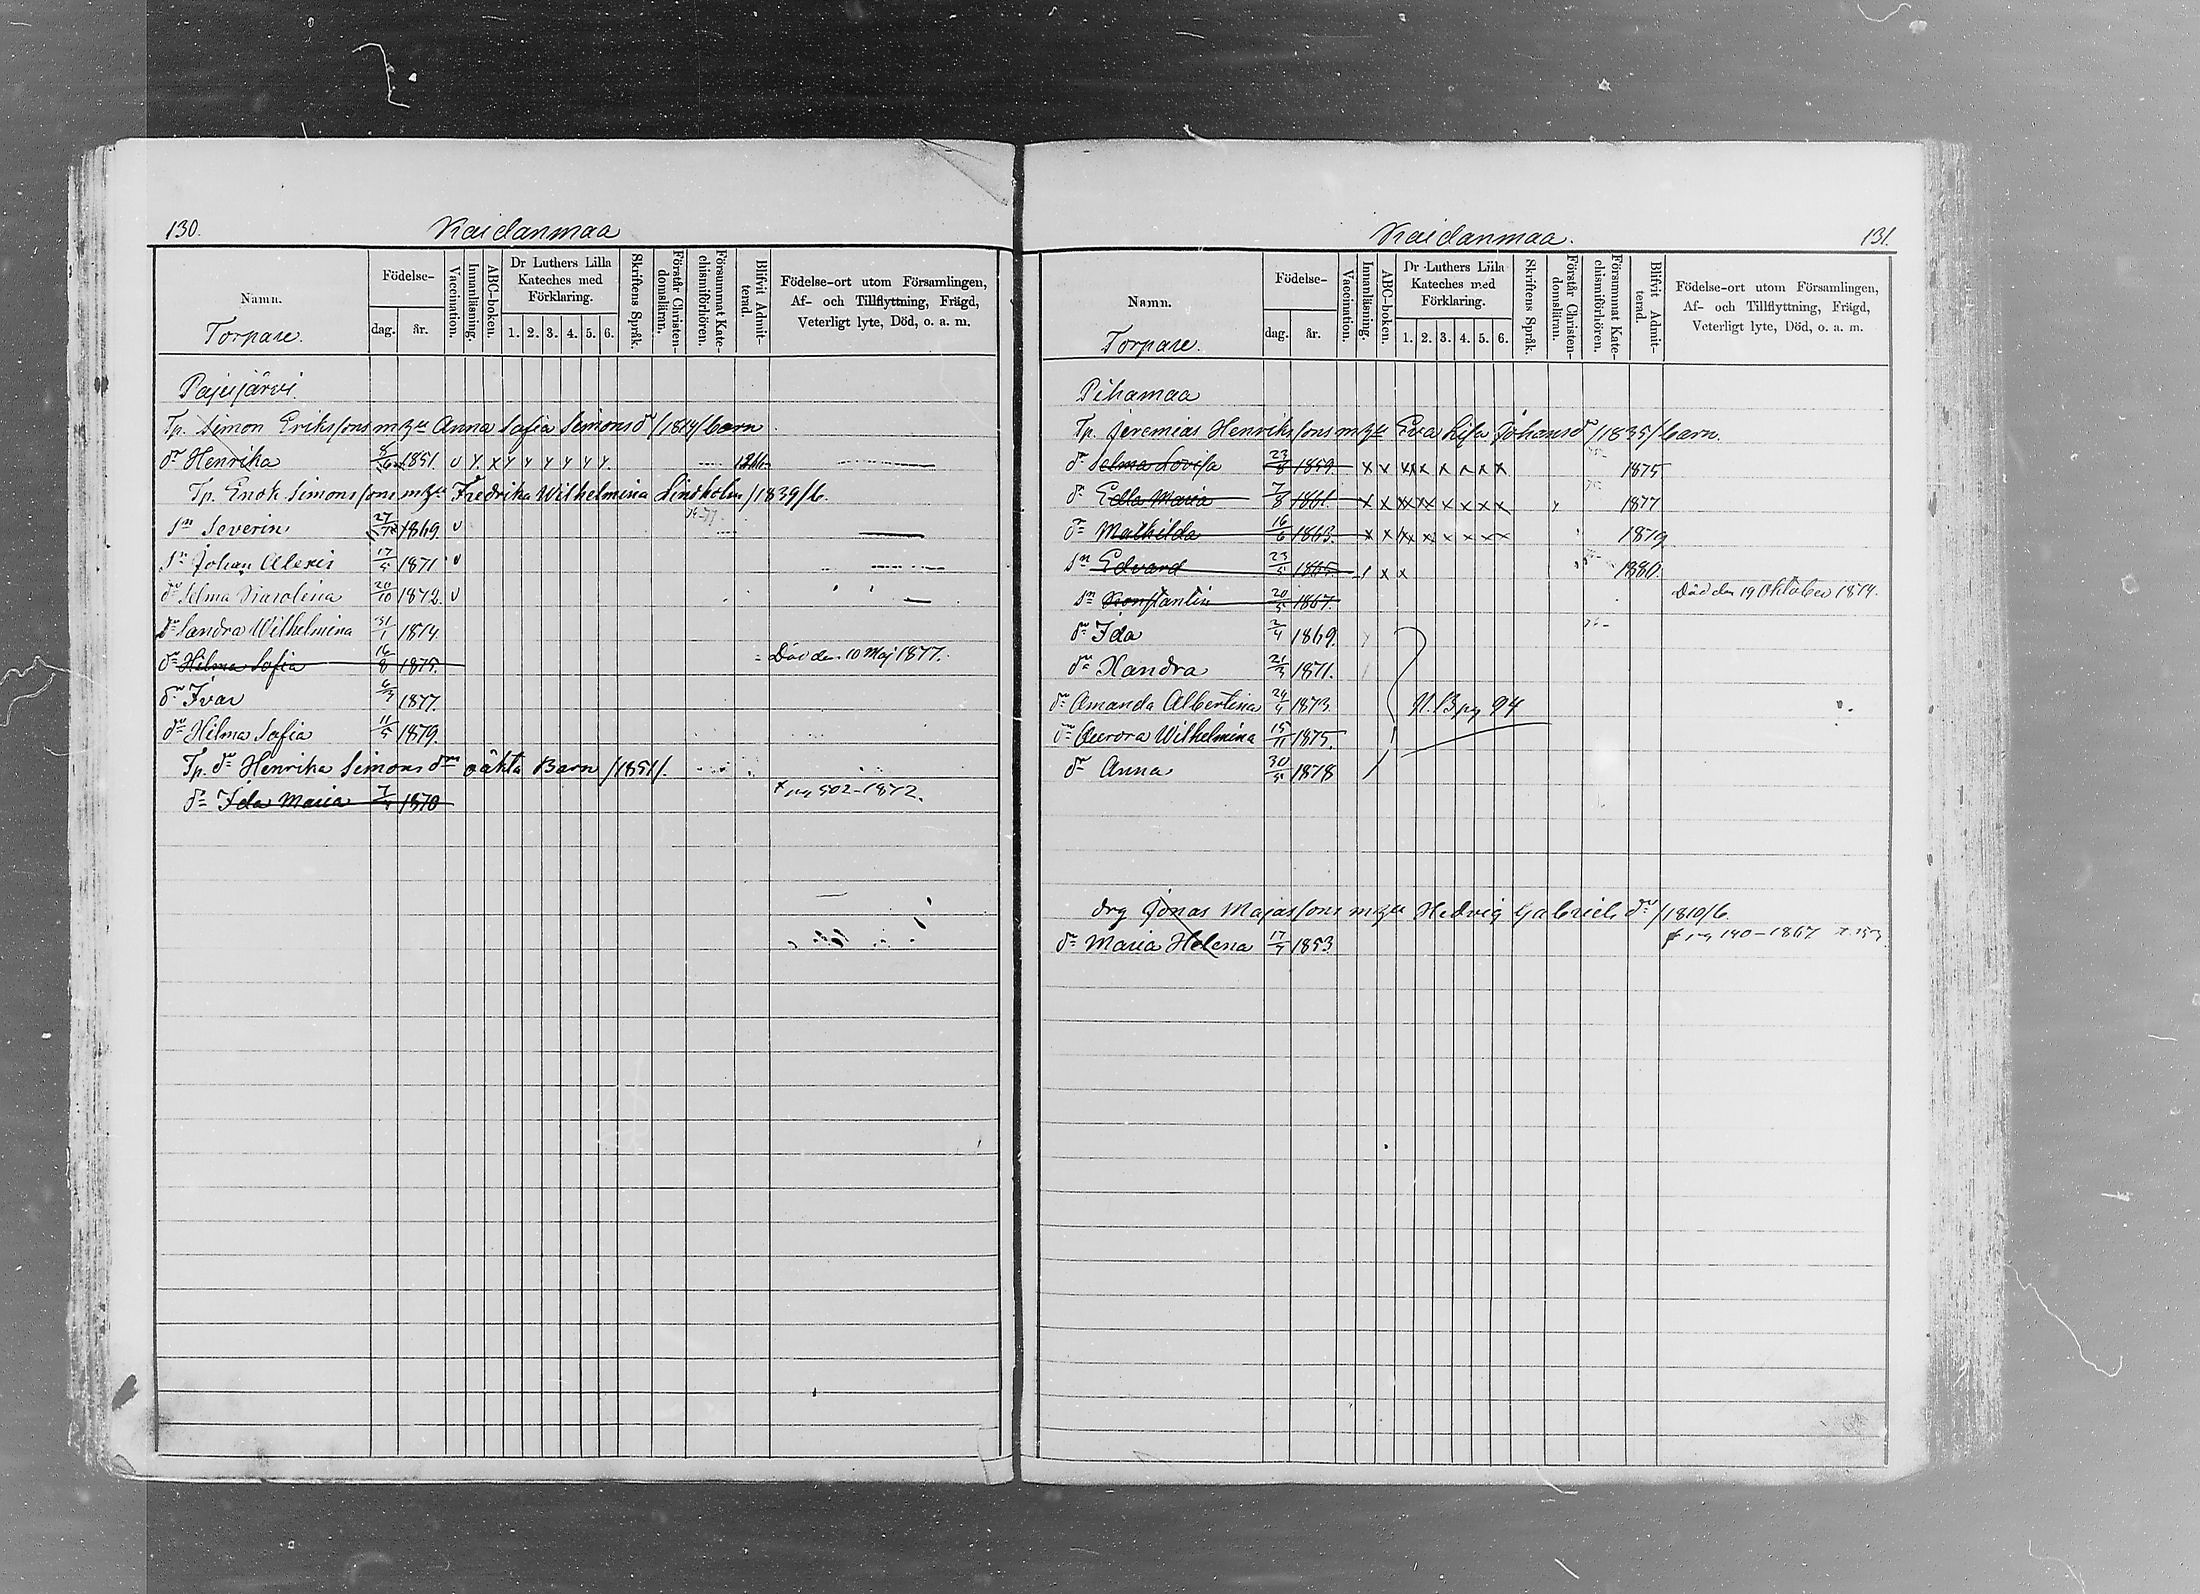 130. Kaidanmaa
Namn.
Födelse-
dag. år.
Vaccination.
Innanläsning.
ABC-boken.
Dr Luthers Lilla
Kateches med
Förklaring.
1. 2. 3. 4. 5. 6.
Skriftens Språk.
Förstår Christen-
domsläran.
Försummat Kate-
chismiförhören.
Blifvit Admit-
terad.
Födelse-ort utom Församlingen,
Af- och Tillflyttning, Frägd,
Veterligt lyte, Död, o. a. m.
Torpare.
Pajujärvi.
Tp. Simon Erikssons m hu Anna Sofia Simonsdr /1814/ barn
dr Henrika 1851. v
Tp. Enok Simonssons m hu Fredrika Wilhelmina Lindholm /1839/ b.
sn Severin 1869. v
sn Johan Alexis 17/5 1871. v
dr Selma Karolina 20/10 1872. v
dr Sandra Wilhelmina 31/1 1874.
dr Hilma Sofia 16/8 1875. Död den 10 Maj 1877.
Ivar 1877.
dr Hilma Sofia 11/5 1879.
Tp. dr Henrika Simonsdrs oäkta Barn /1851/.
dr Ida Maria 1870 pg 502-1872.
Kaidanmaa. 131.
Namn.
Födelse-
dag. år.
Vaccination.
Innanläsning.
ABC-boken.
Dr Luthers Lilla
Kateches med
Förklaring.
1. 2. 3. 4. 5. 6.
Skriftens Språk.
Förstår Christen-
domsläran.
Försummat Kate-
chismiförhören.
Blifvit Admit-
terad.
Födelse-ort utom Församlingen,
Af- och Tillflyttning, Frägd,
Veterligt lyte, Död, o. a. m.
Torpare.
Pihamaa
Tp. Jeremias Henrikssons m hu Eva Lisa Johansdr /1835/ barn.
dr Selma Lovisa 23/8 1859. x x x x x x x x 1875
dr Edla Maria 7/8 1861. x x x x x x x x 1877
dr Mathilda 16/6 1863. x x x x x x x x 1879
sn Edvard 23/5 1865. x x 1880.
sn Konstantin 20/5 1867. Död den 19 Oktober 1874.
dr Ida 2/4 1869.
dr Xandra 1871.
dr Amanda Albertina 1873 N. B pg 94
dr Aurora Wilhelmina 15/11 1875.
dr Anna 30/5 1878
drg Jonas Majassons m hu Hedvig Gabrielsdr /1810/ b.
dr Maria Helena 1853 pg 140-1867